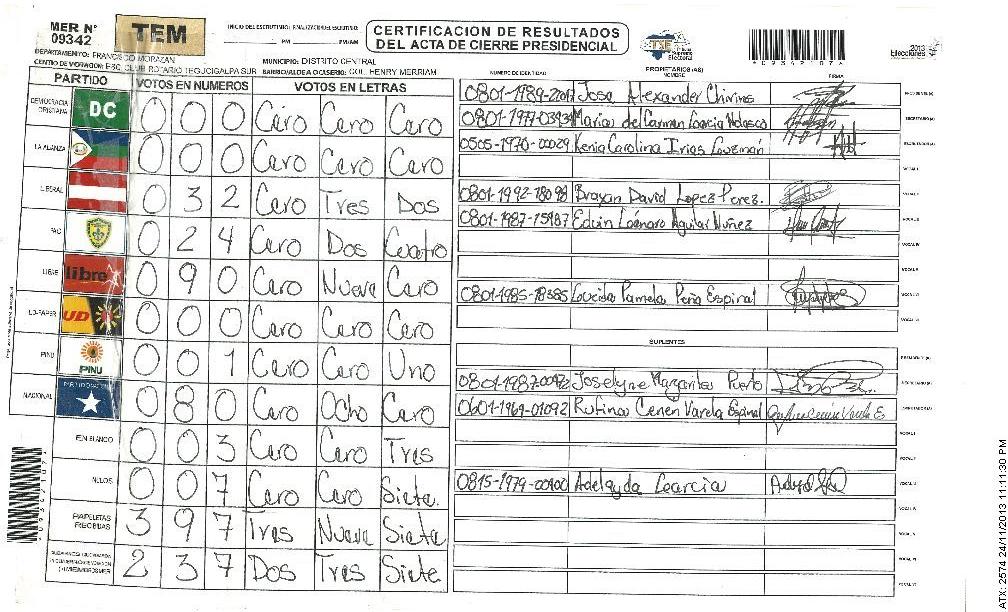 MER Nº
09342
TEM
INICIO DEL ESCRUTINIO: FINALIZACION DEL ESCRUTINIO:
PM PM/AM
CERTIFICACION DE RESULTADOS
DEL ACTA DE CIERRE PRESIDENCIAL
TSE Tribunal Supremo Electoral
2013
Elecciones
DEPARTAMENTO: FRANCISCO MORAZAN
MUNICIPIO: DISTRITO CENTRAL
CENTRO DE VOTACION: ESC. CLUB ROTARIO TEGUCIGALPA SUR
BARRIO/ALDEA O CASERIO: COL. HENRY MERRIAM
NUMERO DE IDENTIDAD
PROPIETARIOS (AS)
NOMBRE
FIRMA
PARTIDO VOTOS EN NUMEROS VOTOS EN LETRAS
DEMOCRACIA CRISTIANA DC 0 0 0 Cero Cero Cero
LA ALIANZA 0 0 0 Cero Cero Cero
LIBERAL 0 3 2 Cero Tres Dos
PAC 0 2 4 Cero Dos Cuatro
LIBRE libre 0 9 0 Cero Nueve Cero
UD-FAPER UD 0 0 0 Cero Cero Cero
PINU PINU 0 0 1 Cero Cero Uno
NACIONAL 0 8 0 Cero Ocho Cero
EN BLANCO 0 0 3 Cero Cero Tres
NULOS 0 0 7 Cero Cero Siete.
PAPELETAS RECIBIDAS 3 9 7 Tres Nueve Siete
2 3 7 Dos Tres Siete
Jose Alexander Chirinos
Maria del Carmen Garcia Velasco
0505-1970-00029 Kenia Carolina Irias Guzmán
0801-1992-18098 Brayan David Lopez Perez.
0801-1987-15987 Edwin Leonaro Aguilar Nuñez
0801-1985-18385 Loucida Pamela Peña Espinal
SUPLENTES
Joselyne Margarita Puerto
0601-1969-01092 Rufino Cenen Varela Espinal
0815-1979-00400 Adelayda Garcia
ATX: 2574 24/11/2013 11:11:30 PM